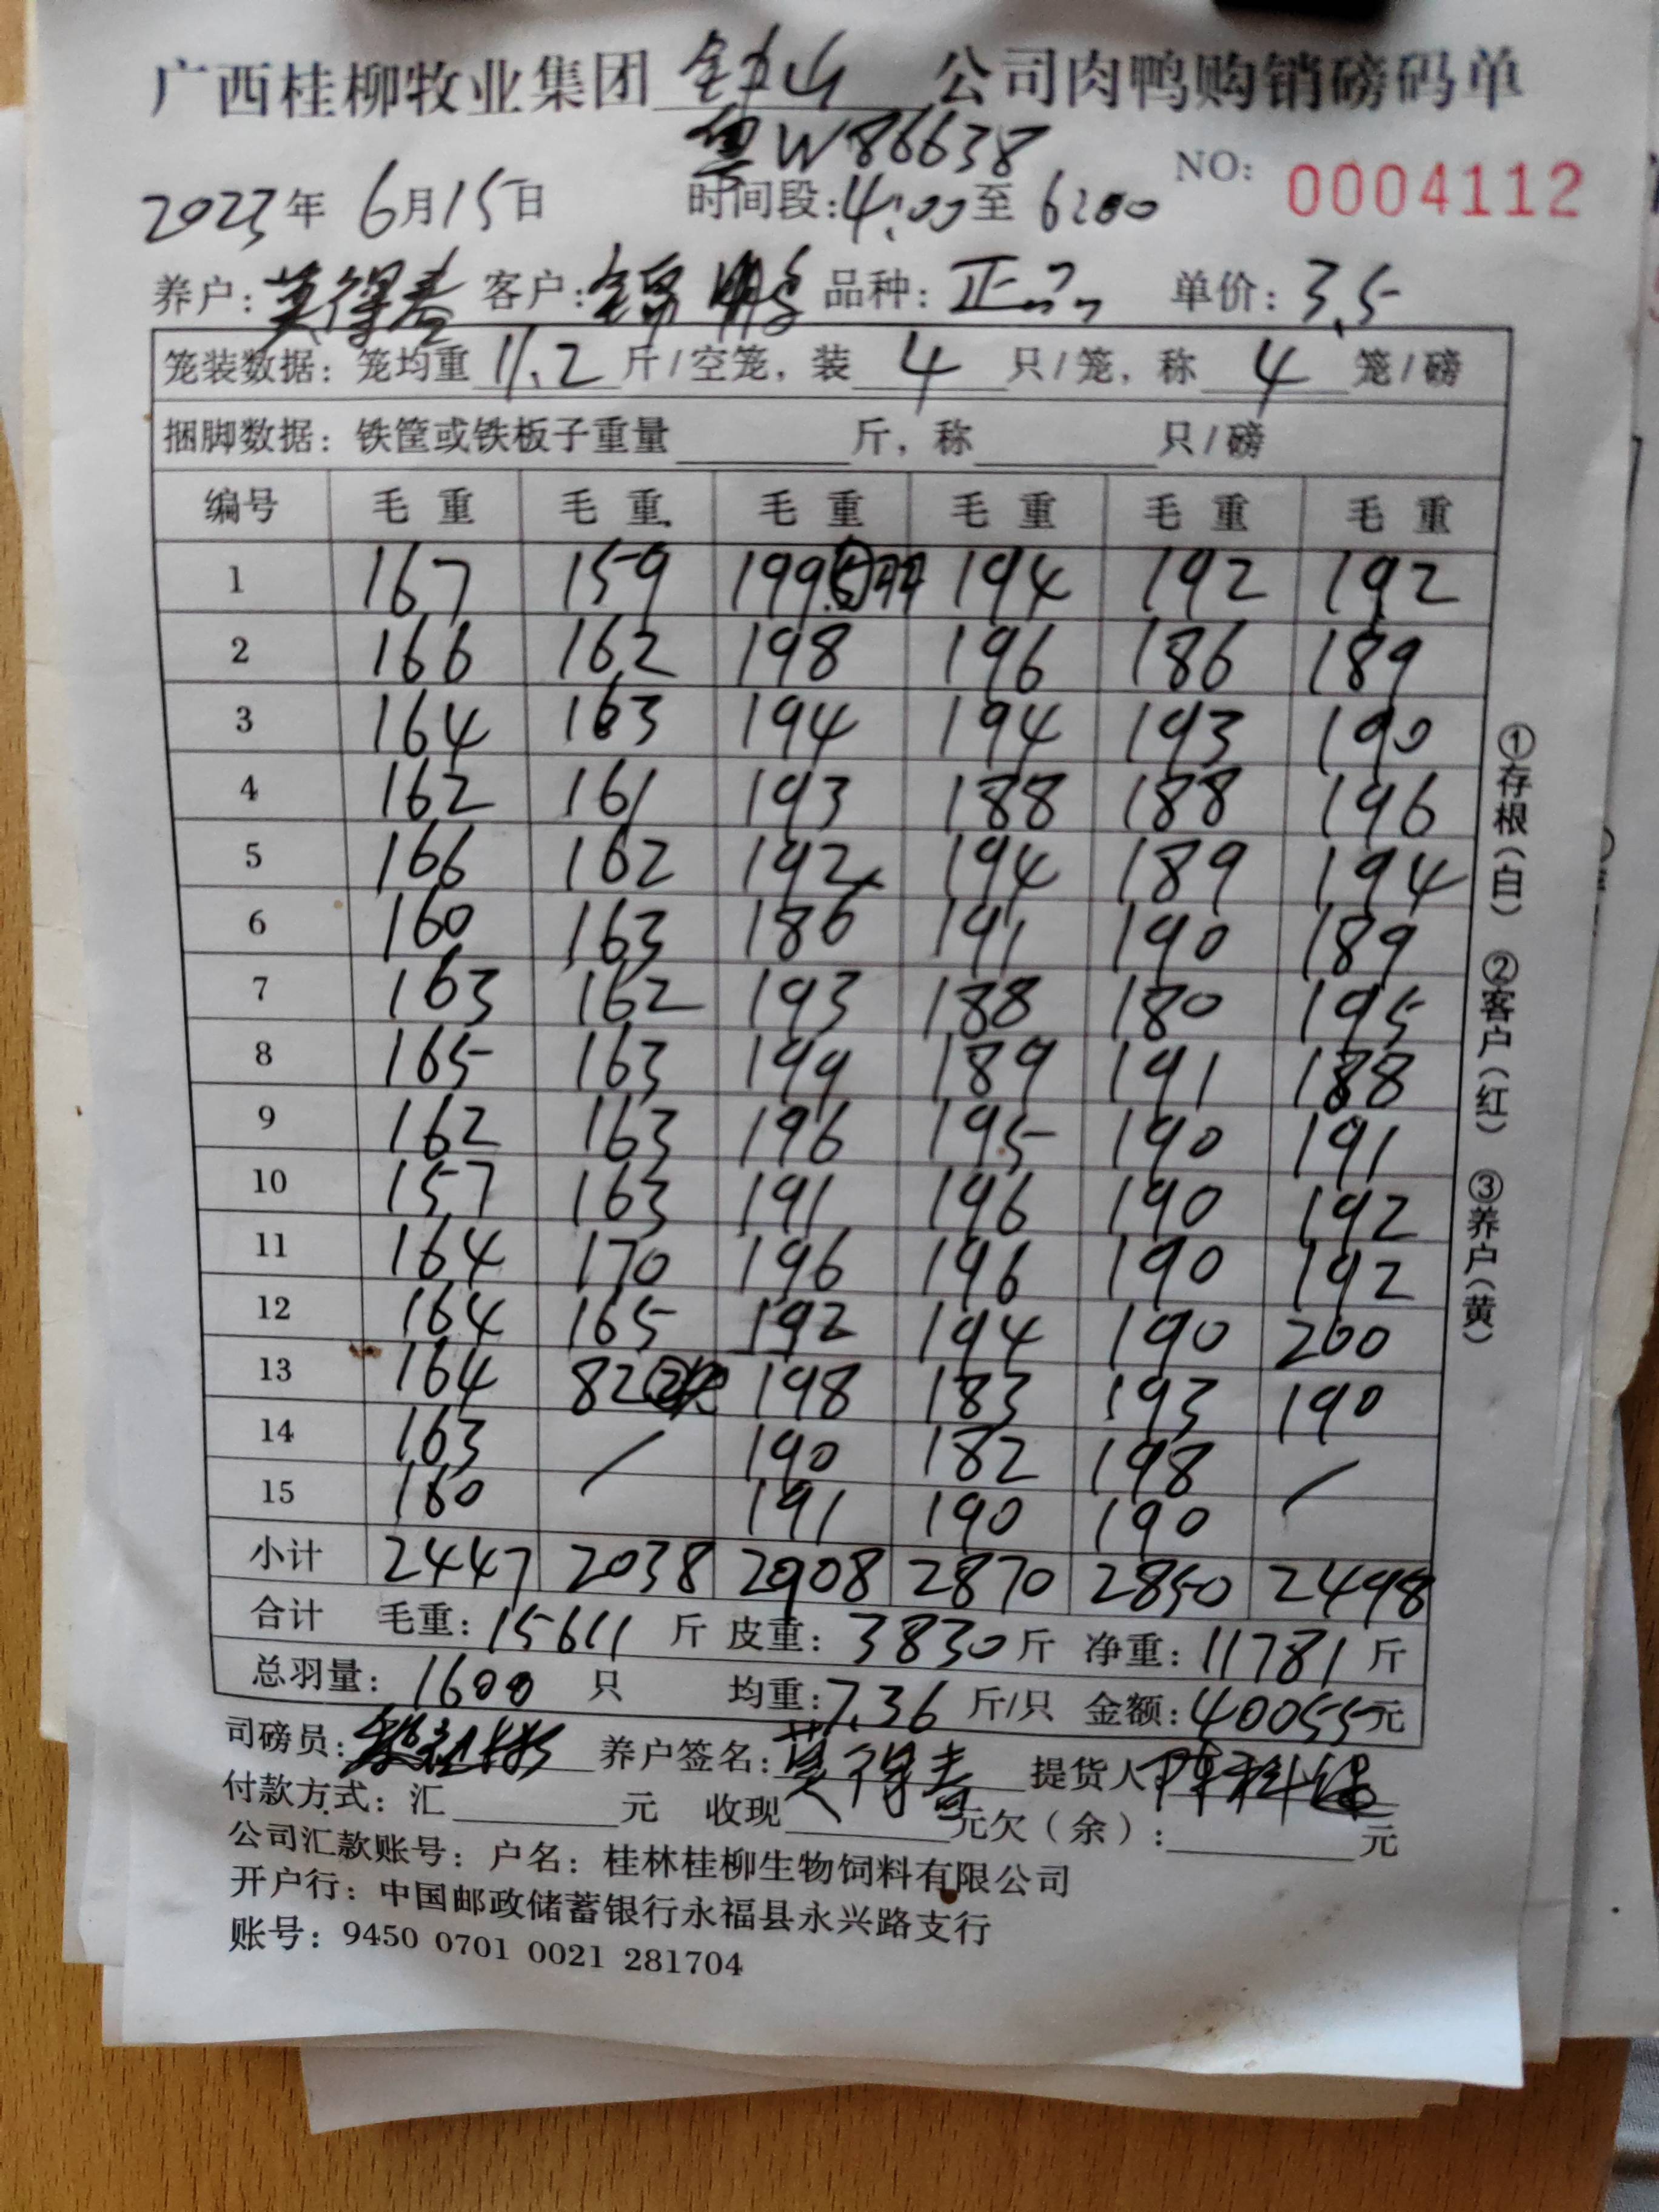 广西桂柳牧业集团 钟山 公司肉鸭购销磅码单
粤W86638
2023年 6月15日 时间段:4:00至 6:00 NO: 0004112
养户:莫得春 客户:锦鹏 品种:正品 单价:3.5
笼装数据:笼均重 11.2 斤/空笼,装 4 只/笼,称 4 笼/磅
捆脚数据:铁筐或铁板子重量 斤,称 只/磅
编号 毛重 毛重 毛重 毛重 毛重 毛重
1 167 159 199 194 192 192
2 166 162 198 196 186 189
3 164 163 194 194 193 190
4 162 161 193 188 188 196
5 166 162 192 194 189 194
6 160 163 186 191 190 189
7 163 162 193 188 180 195
8 165 163 199 189 191 188
9 162 163 196 195 190 191
10 157 163 191 196 190 192
11 164 170 196 196 190 192
12 164 165 192 194 190 200
13 164 82 198 183 193 190
14 163 / 190 182 198 /
15 160 191 190 190
小计 2447 2038 2908 2870 2850 2498
合计 毛重:15611 斤 皮重:3830斤 净重:11781斤
总羽量:1600 只 均重:7.36 斤/只 金额:40055元
司磅员: 养户签名:莫得春 提货人:
付款方式:汇 元 收现 元欠(余): 元
公司汇款账号:户名:桂林桂柳生物饲料有限公司
开户行:中国邮政储蓄银行永福县永兴路支行
账号:9450 0701 0021 281704
①存根(白) ②客户(红) ③养户(黄)